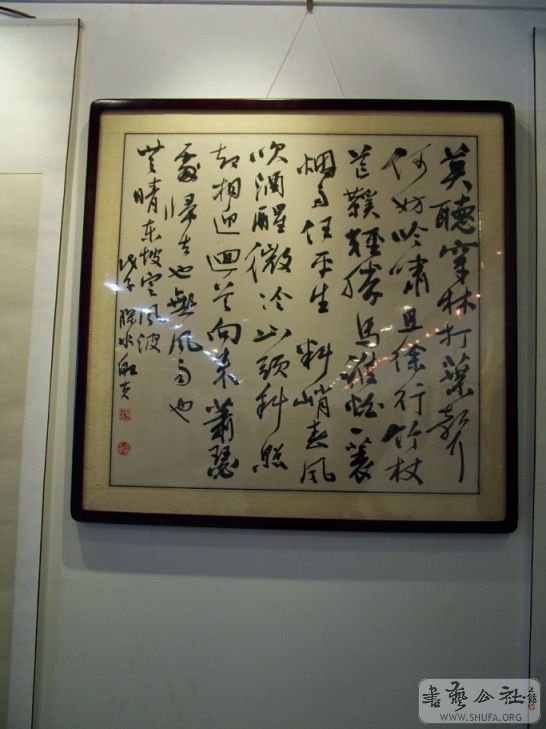 莫聽穿林打葉聲
何妨吟嘯且徐行竹杖
芒鞵輕勝馬誰怕一蓑
烟雨任平生料峭春風
吹酒醒微冷山頭斜照
却相迎迴首向來蕭瑟
處歸去也無風雨也
無晴东坡定風波
戊子
書藝公社
WWW.SHUFA.ORG